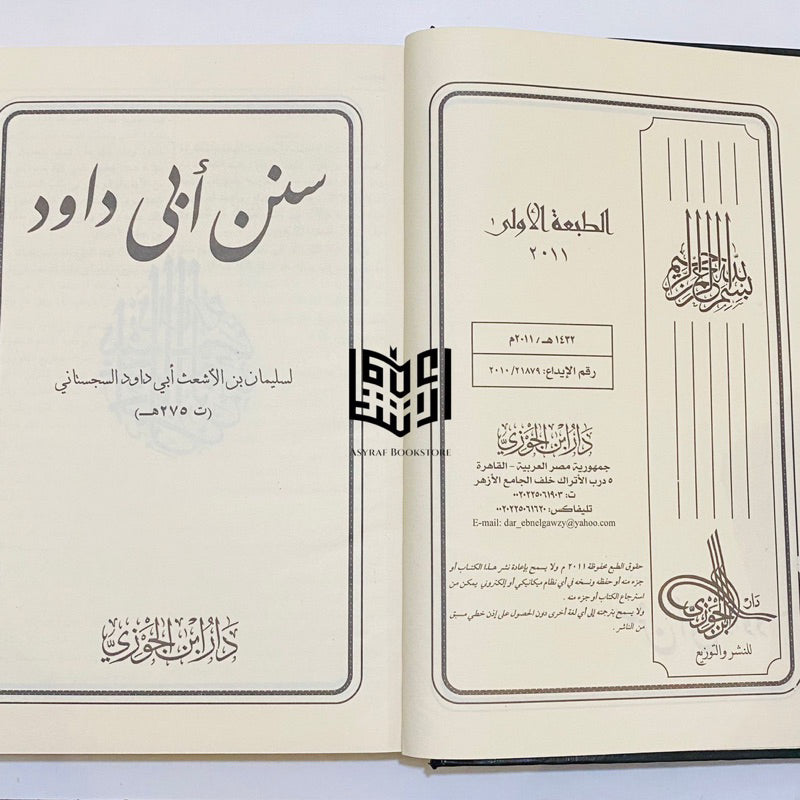 بسم الله الرحمن الرحيم
دار ابن الجوزي
للنشر والتوزيع
الطبعة الأولى
٢٠١١
١٤٣٢ هـ / ٢٠١١م
رقم الإيداع: ٢٠١٠/٢١٨٧٩
دار ابن الجوزي
جمهورية مصر العربية - القاهرة
٥ درب الأتراك خلف الجامع الأزهر
ت: ٠٠٢٠٢٢٥٠٦١٩٠٣
تليفاكس: ٠٠٢٠٢٢٥٠٦١٦٢٠
E-mail: dar_ebnelgawzy@yahoo.com
حقوق الطبع محفوظة ٢٠١١ م ولا يسمح بإعادة نشر هذا الكتاب أو
جزء منه أو حفظه ونسخه في أي نظام ميكانيكي أو إلكتروني يمكن من
استرجاع الكتاب أو جزء منه .
ولا يسمح بترجمته إلى أي لغة أخرى دون الحصول على إذن خطي مسبق
من الناشر .
سنن أبي داود
لسليمان بن الأشعث أبي داود السجستاني
(ت ٢٧٥هـ)
دار ابن الجوزي
Asyraf Bookstore